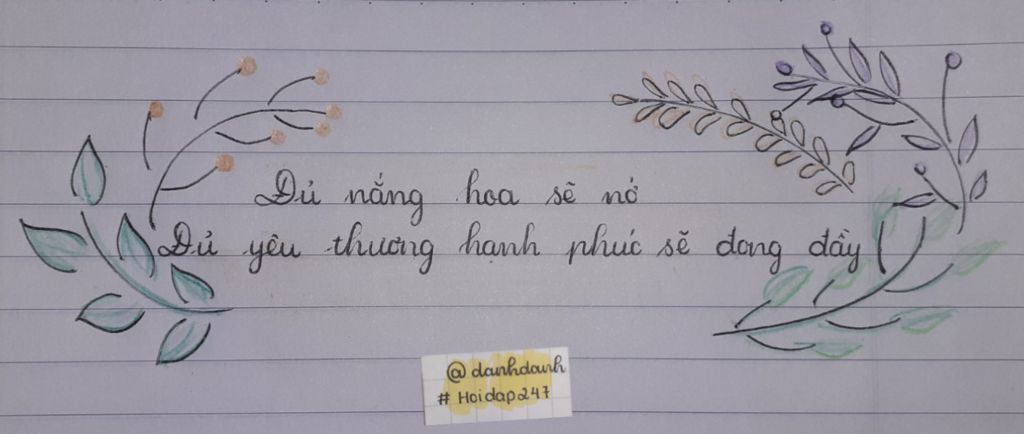 Đủ nắng hoa sẽ nở
Đủ yêu thương hạnh phúc sẽ đong đầy
@danhdanh
#Hoidap247